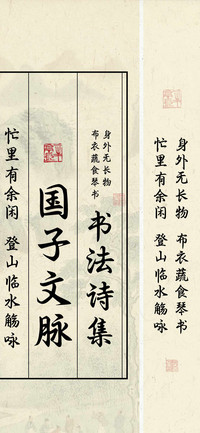 身外无长物 布衣蔬食琴书
忙里有余闲 登山临水觞咏
身外无长物
布衣蔬食琴书
书法诗集
国子文脉
忙里有余闲 登山临水觞咏